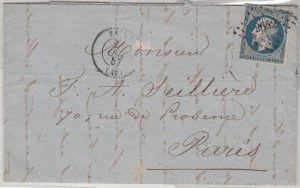 Monsieur
F. A. Seillière
70, rue de Provence
Paris